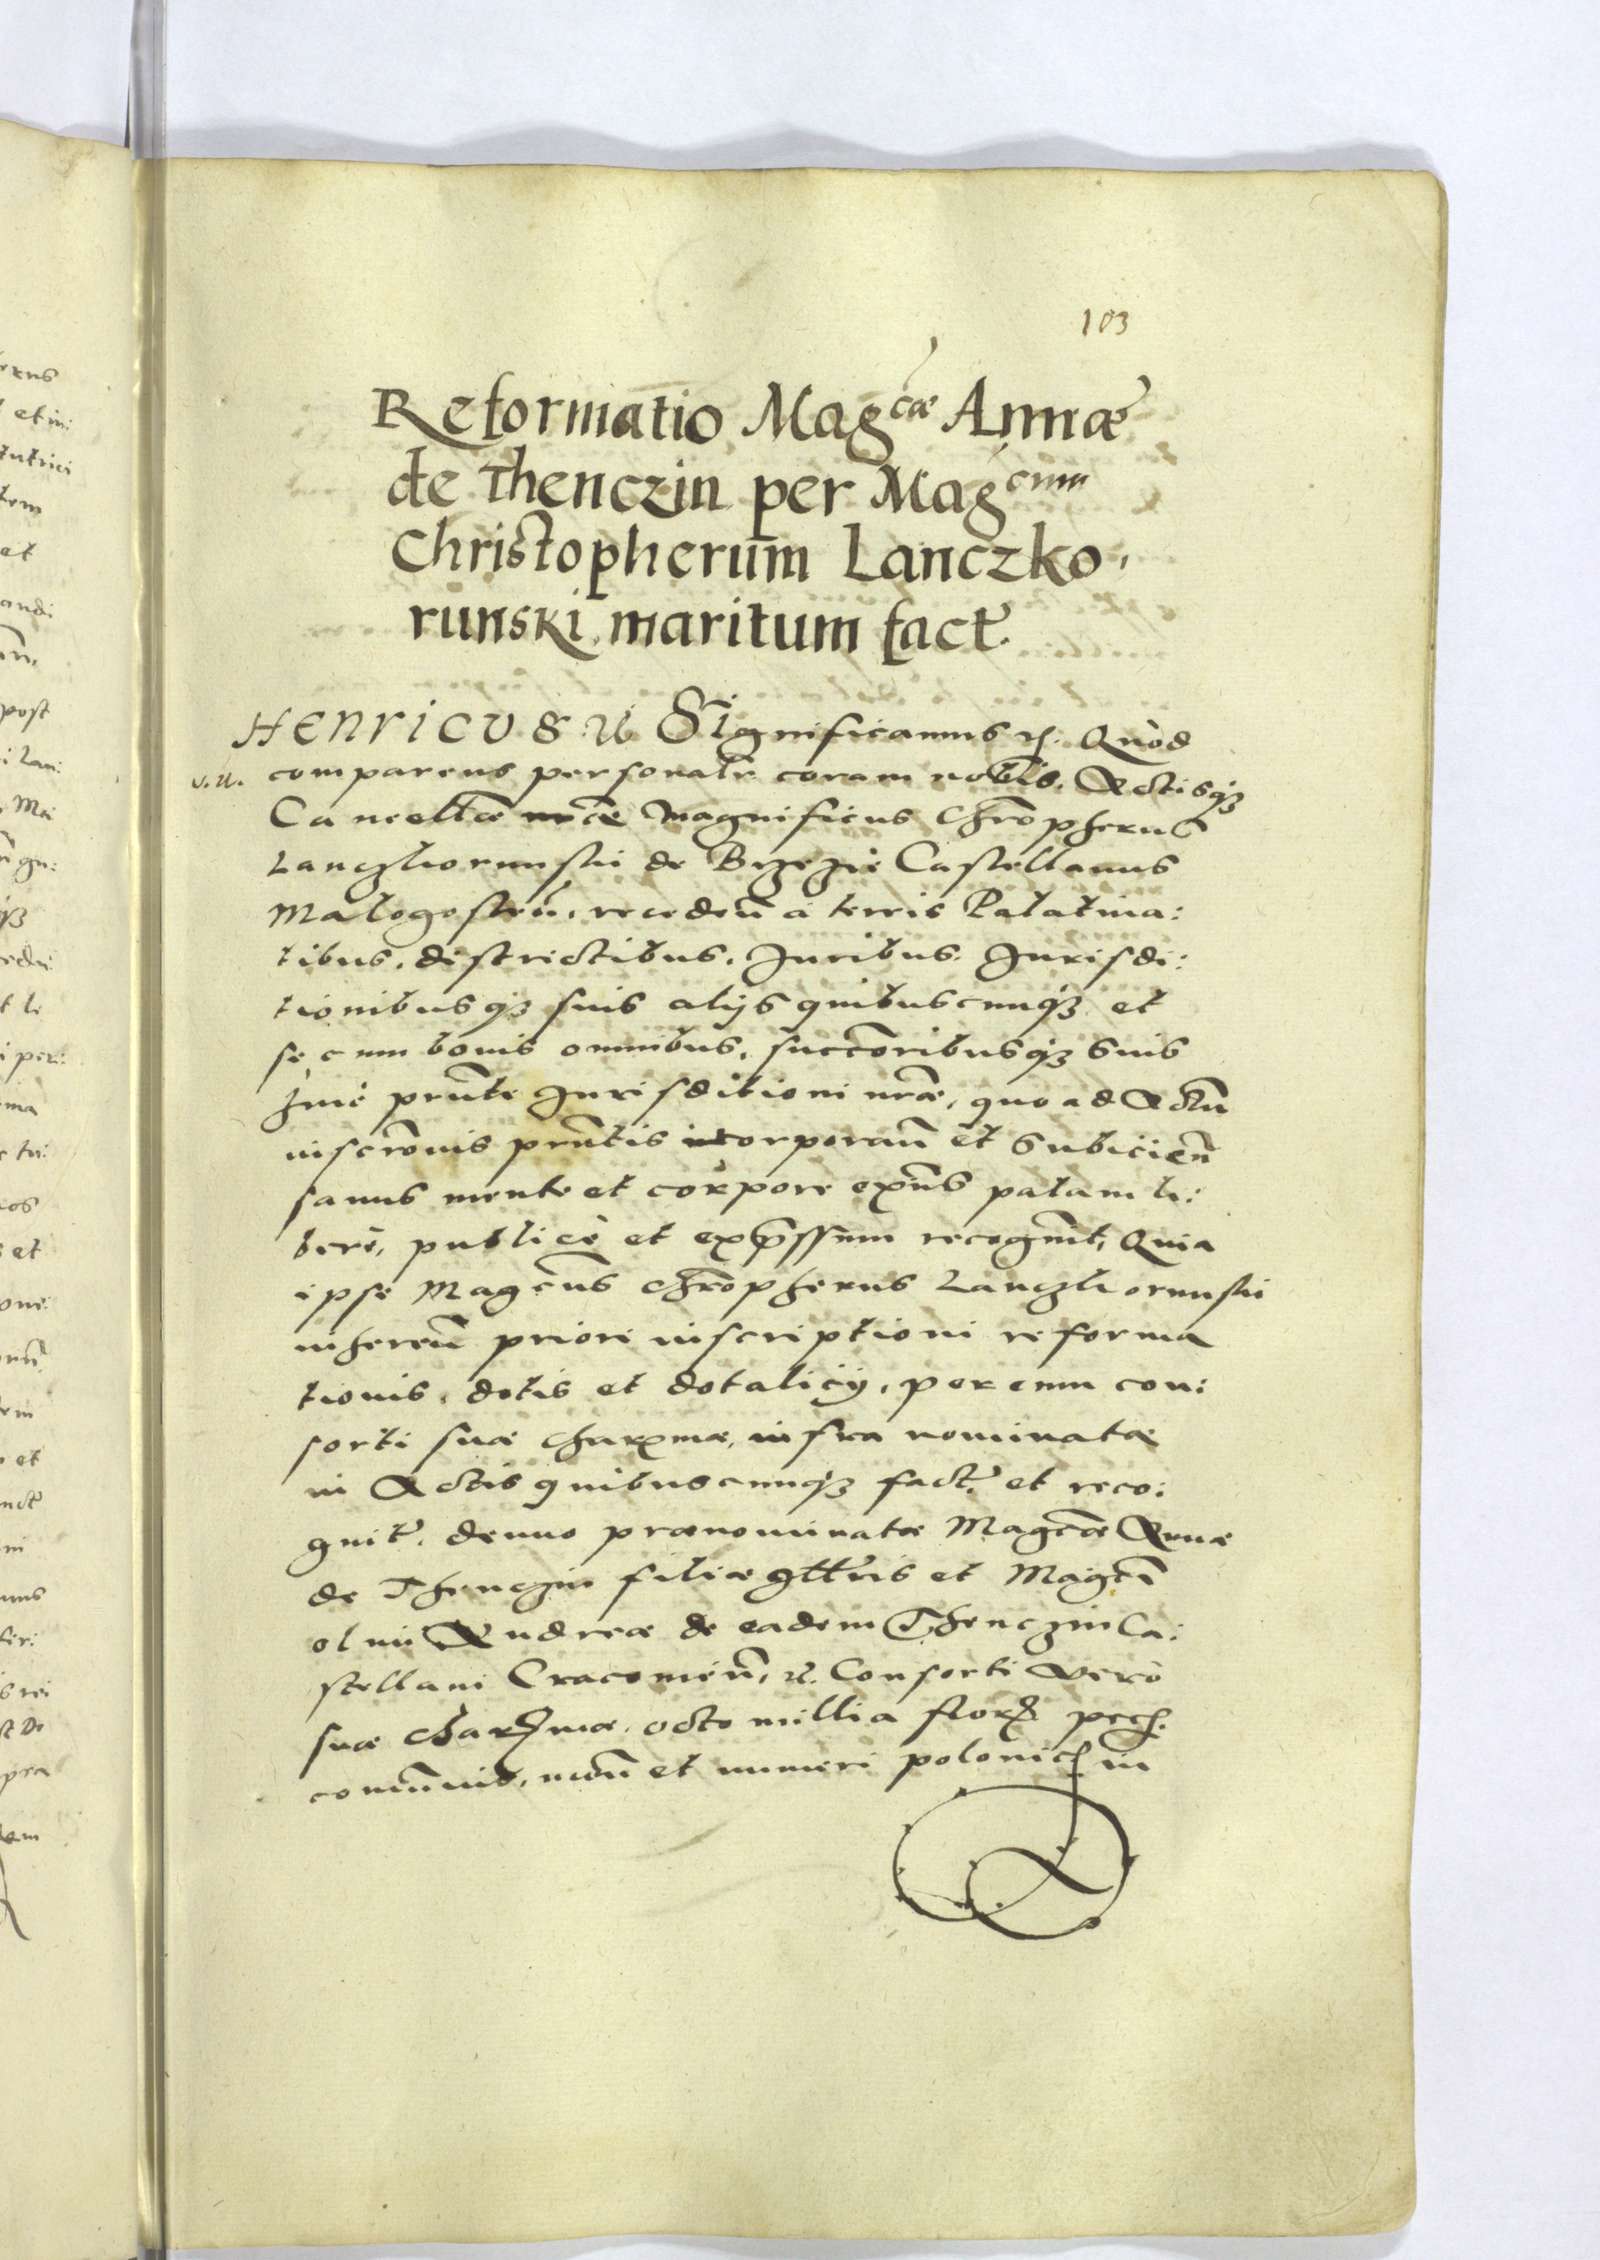 103
Reformatio Mag^cae Annæ
de Thenczin per Mag^cum
Christopherum Lanczko,
runski maritum fact̃.
HENRICUS etc. Significamus etc. Quòd
comparens personalr̃ coram nobis, Actisq3
Cancellr̃æ nr̃æ Magnificus Chrõpherus
Lanczkorunski de Brzezie Castellanus
Malogosteñ, recedeñ à terris Palatina:
tibus, districtibus, Juribus Jurisdi:
tionibusq3 suis alijs quibuscunq3 et
se cum bonis omnibus, succõribusq3 suis
huic prñti Jurisditioni nr̃æ, quo ad Actũ
inscrõnis prñtis incorporañ et subijcień
sanus mente et corpore exñs palam li:
berè, publicè et exp̃ssum recognuit, Quia
ipse Magc̃us Chrõpherus Lanczkorunski
inhereñ priori inscriptioni reforma
tionis, dotis et dotalicij, per eum con:
sorti suæ charxmæ, infra nominatæ
in Actis quibuscunq3 fact̃. et reco:
gnit̃. denuo prænominatæ Magc̃æ Annæ
de Thenczin filiæ gtt̃ris et Magc̃i
olim Andreæ de eadem Thenczin Ca:
stellani Cracovień, etc. Consorti verò
suæ charxmæ, octo millia florẽ pecẽ.
comũnis, moñ et numeri polonicẽ in